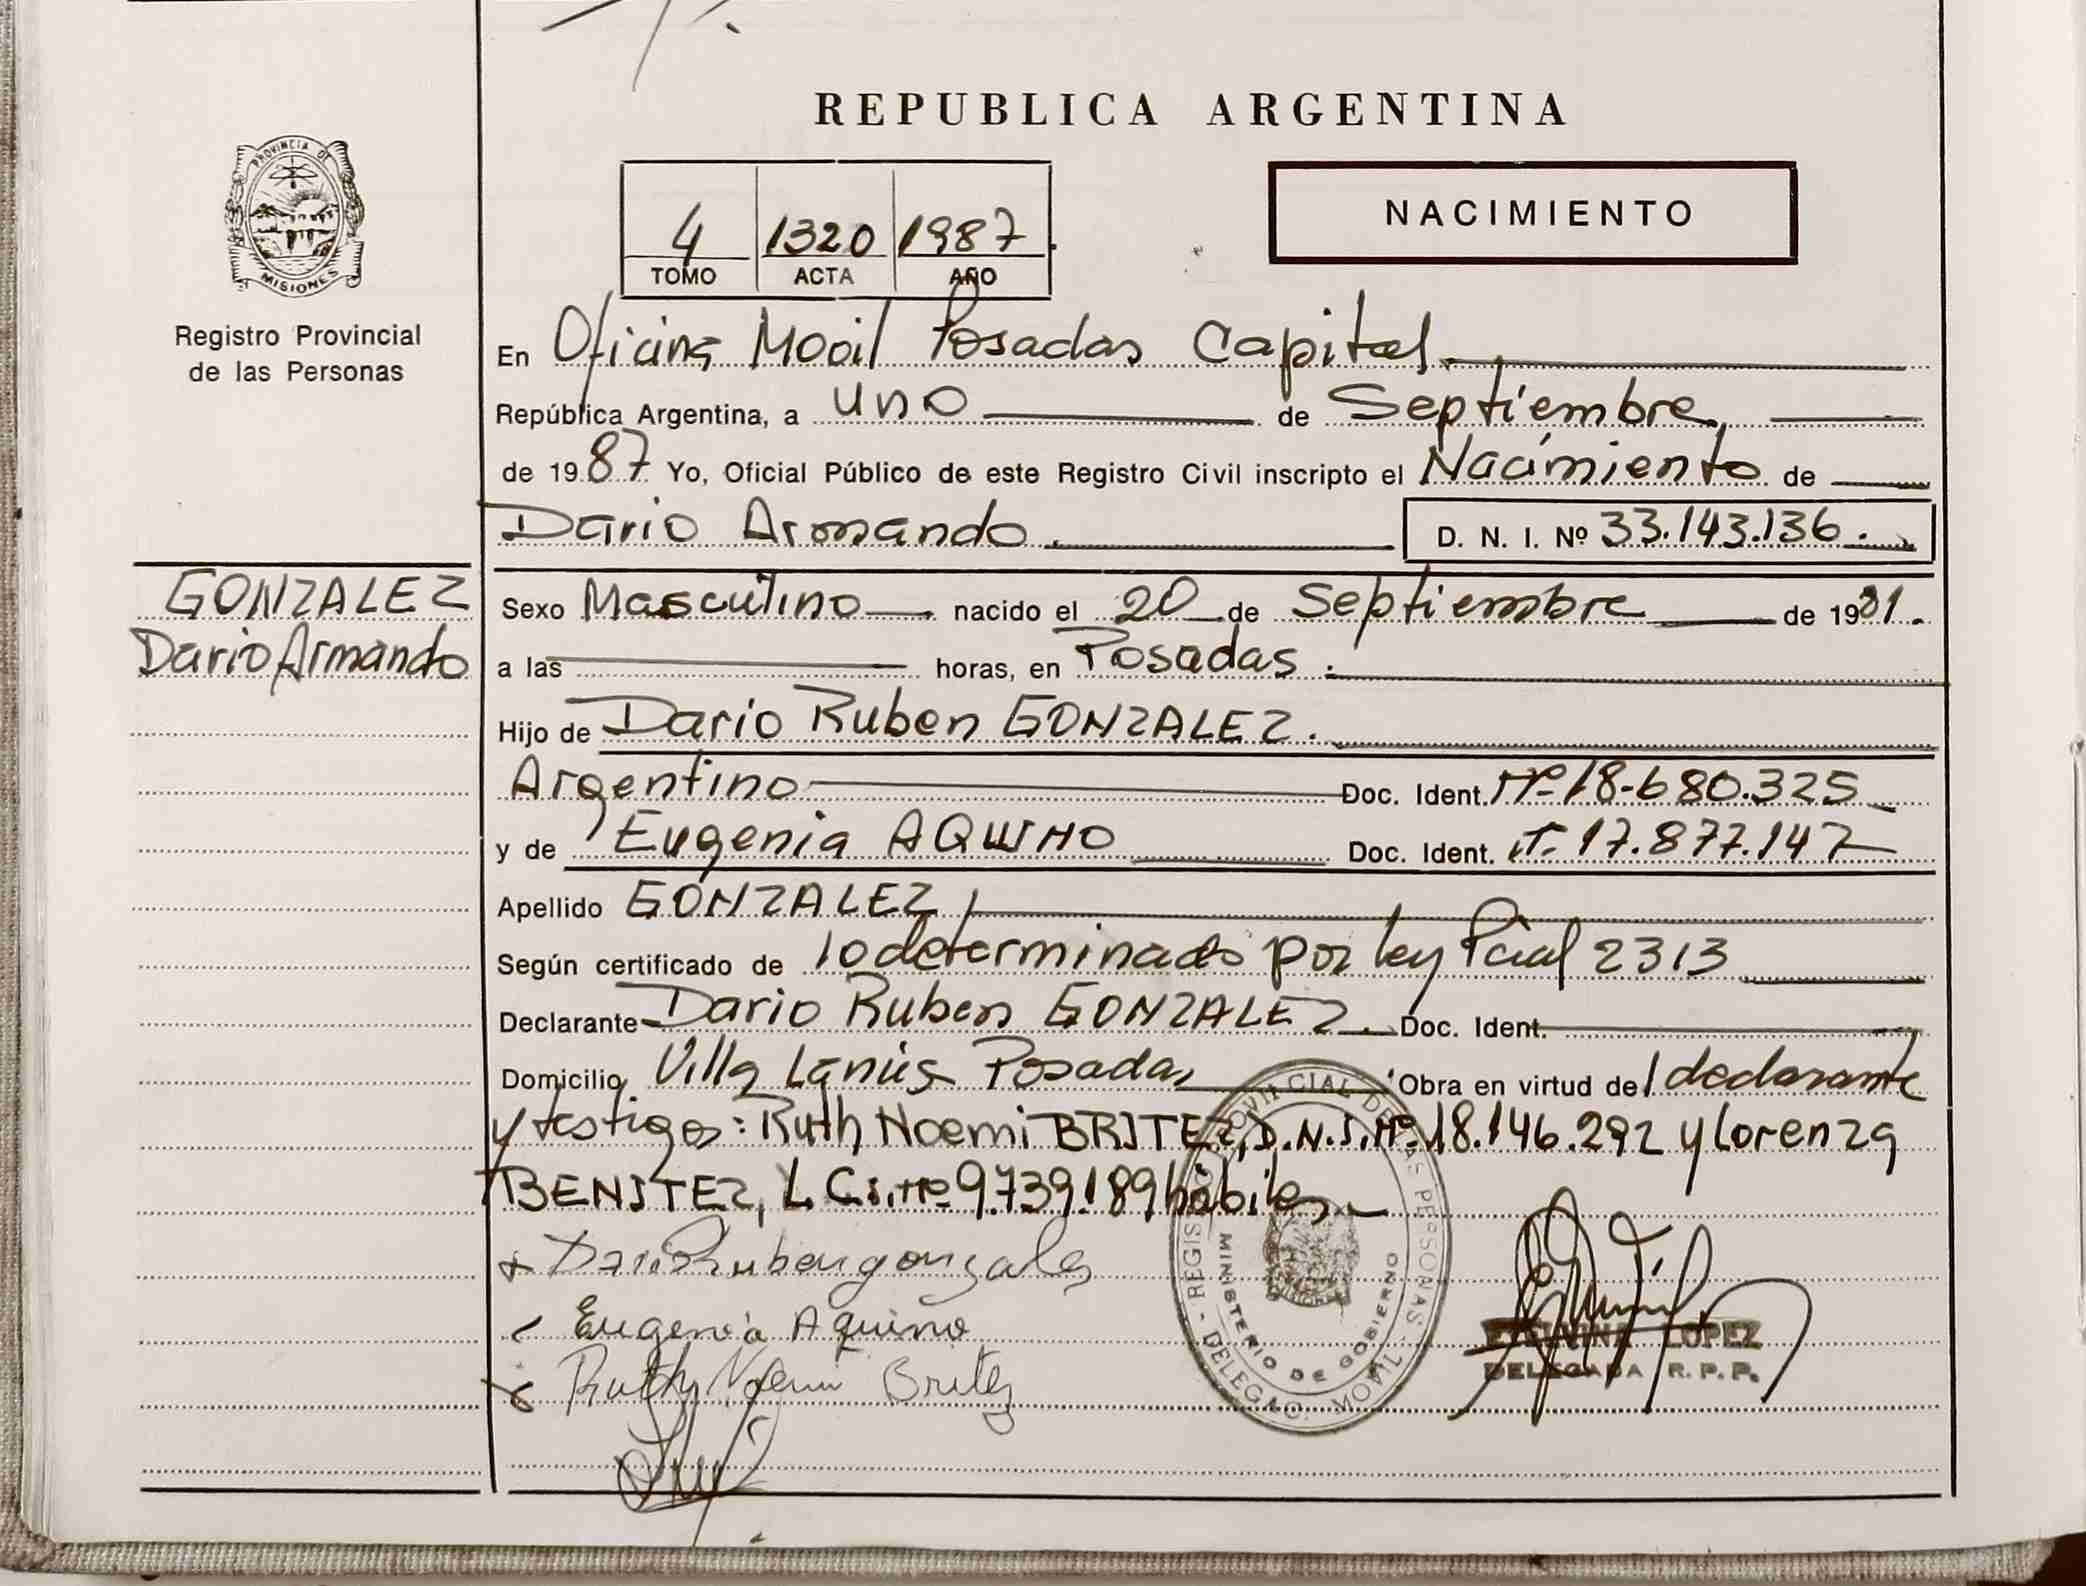 REPUBLICA ARGENTINA
PROVINCIA DE
MISIONES
Registro Provincial
de las Personas
4 1320 1987
TOMO ACTA AÑO
NACIMIENTO
En Oficina Movil Posadas Capital
República Argentina, a uno de Septiembre
de 1987 Yo, Oficial Público de este Registro Civil inscripto el Nacimiento de
Dario Armando. D. N. I. Nº 33.143.136.
GONZALEZ
Dario Armando
Sexo Masculino nacido el 20 de Septiembre de 1981.
a las horas, en Posadas.
Hijo de Dario Ruben GONZALEZ.
Argentino Doc. Ident. Nº 18.680.325
y de Eugenia AQUINO Doc. Ident. 17.877.147
Apellido GONZALEZ
Según certificado de lo determinado por ley Pcial 2313
Declarante Dario Ruben GONZALEZ. Doc. Ident.
Domicilio Villa Lanús Posadas Obra en virtud del declarante
y testigos: Ruth Noemi BRITEZ, D.N.I. Nº 18.146.292 y Lorenza
BENITEZ, L.C. Nº 9.739.189 habiles
Dario Ruben gonzales
Eugenia Aquino
Ruth Noemi Britez
REGISTRO PROVINCIAL DE LAS PERSONAS - DELEGAC. MOVIL
MINISTERIO DE GOBIERNO
LOPEZ
DELEGADA R. P. P.